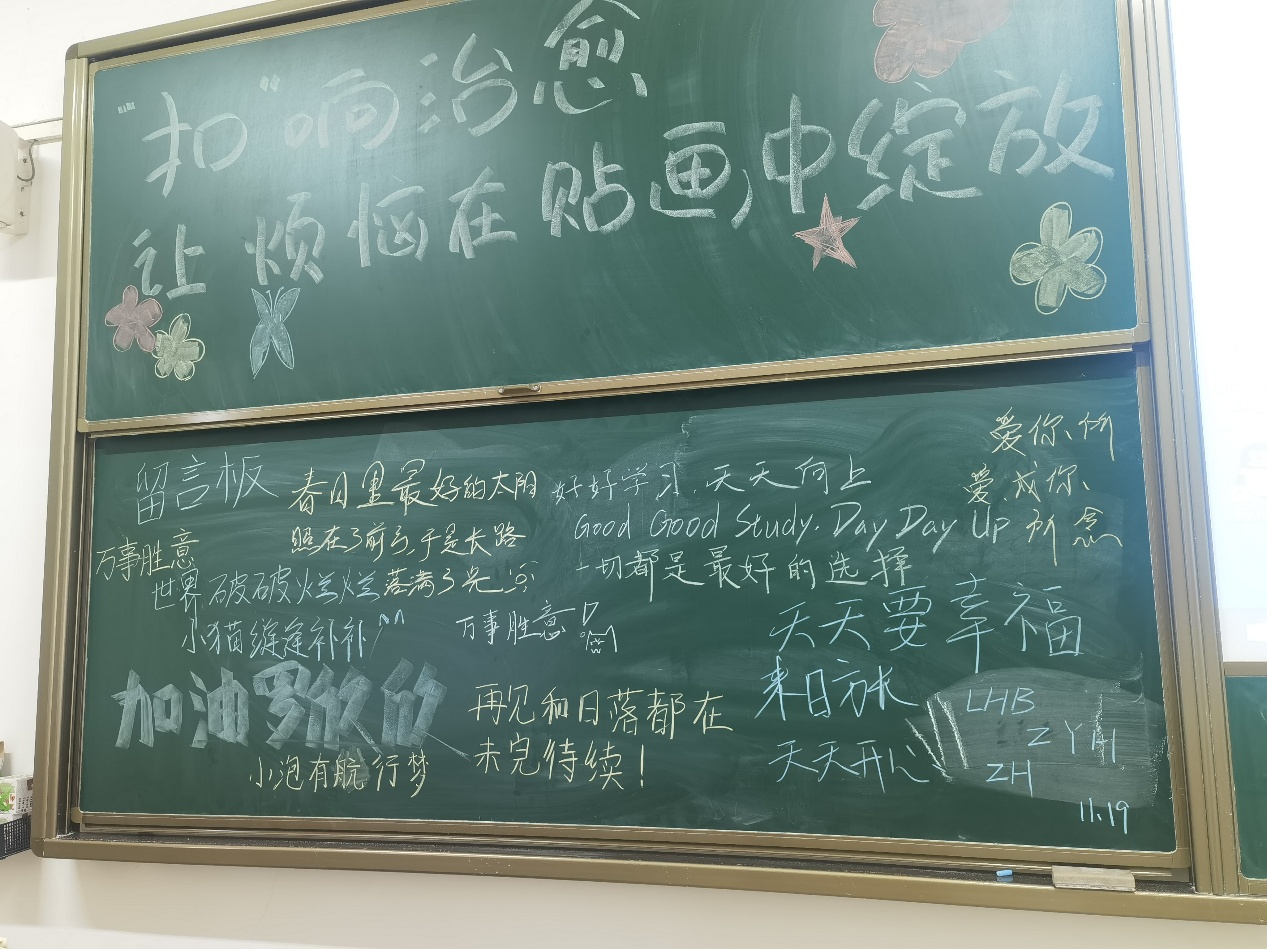 “扣”响治愈
让烦恼在贴画中绽放
留言板
春日里最好的太阳
照在了前方,于是长路
落满了光
好好学习,天天向上
Good Good Study. Day Day Up
一切都是最好的选择
爱你、所
爱、成你、
所念
万事胜意
世界破破烂烂
小猫缝缝补补^^
万事胜意
天天要幸福
加油罗欣欣
小泡有航行梦
再见和日落都在
未完待续!
来日方长
天天开心
LHB
ZYH
ZH
11.19